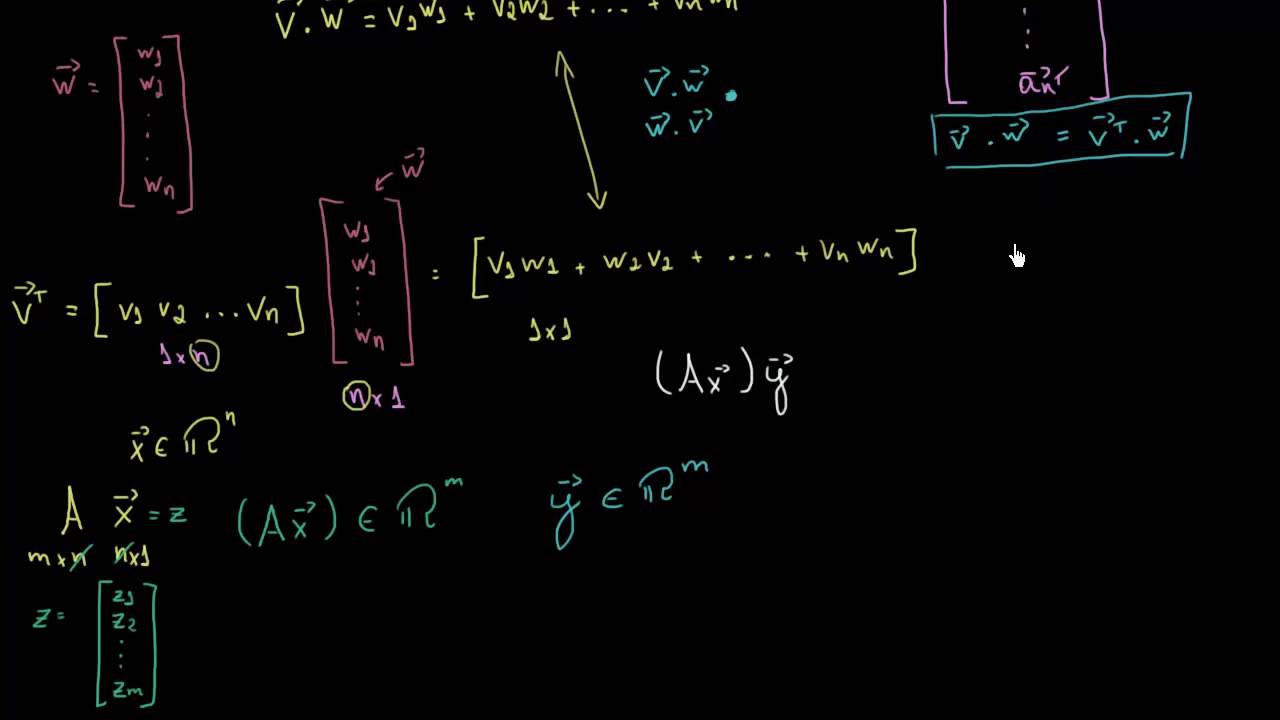 v⃗ . w⃗ = v1w1 + v2w2 + ... + vnwn
w⃗ = [ w1 w2 . . . wn ]
⋮
a⃗nᵀ
v⃗ . w⃗
w⃗ . v⃗
v⃗ . w⃗ = v⃗ᵀ . w⃗
w⃗
v⃗ᵀ = [ v1 v2 ... vn ] [ w1 w1 ⋮ wn ] = [ v1w1 + w2v2 + ... + vnwn ]
1x n
n x 1
1x1
(Ax⃗) y⃗
x⃗ ∈ ℝⁿ
A x⃗ = z (Ax⃗) ∈ ℝᵐ y⃗ ∈ ℝᵐ
m x n n x1
z = [ z1 z2 ⋮ zm ]